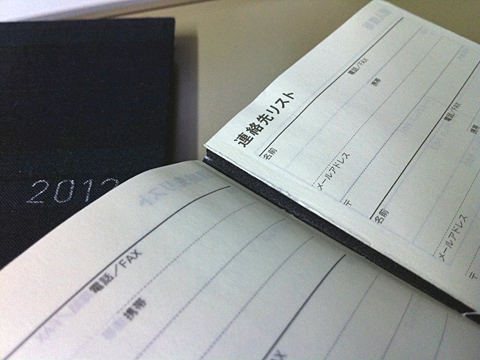 2012
連絡先リスト
名前
電話/FAX
携帯
メールアドレス
〒
名前
電話/FAX
携帯
メールアドレス
〒
電話/FAX
携帯